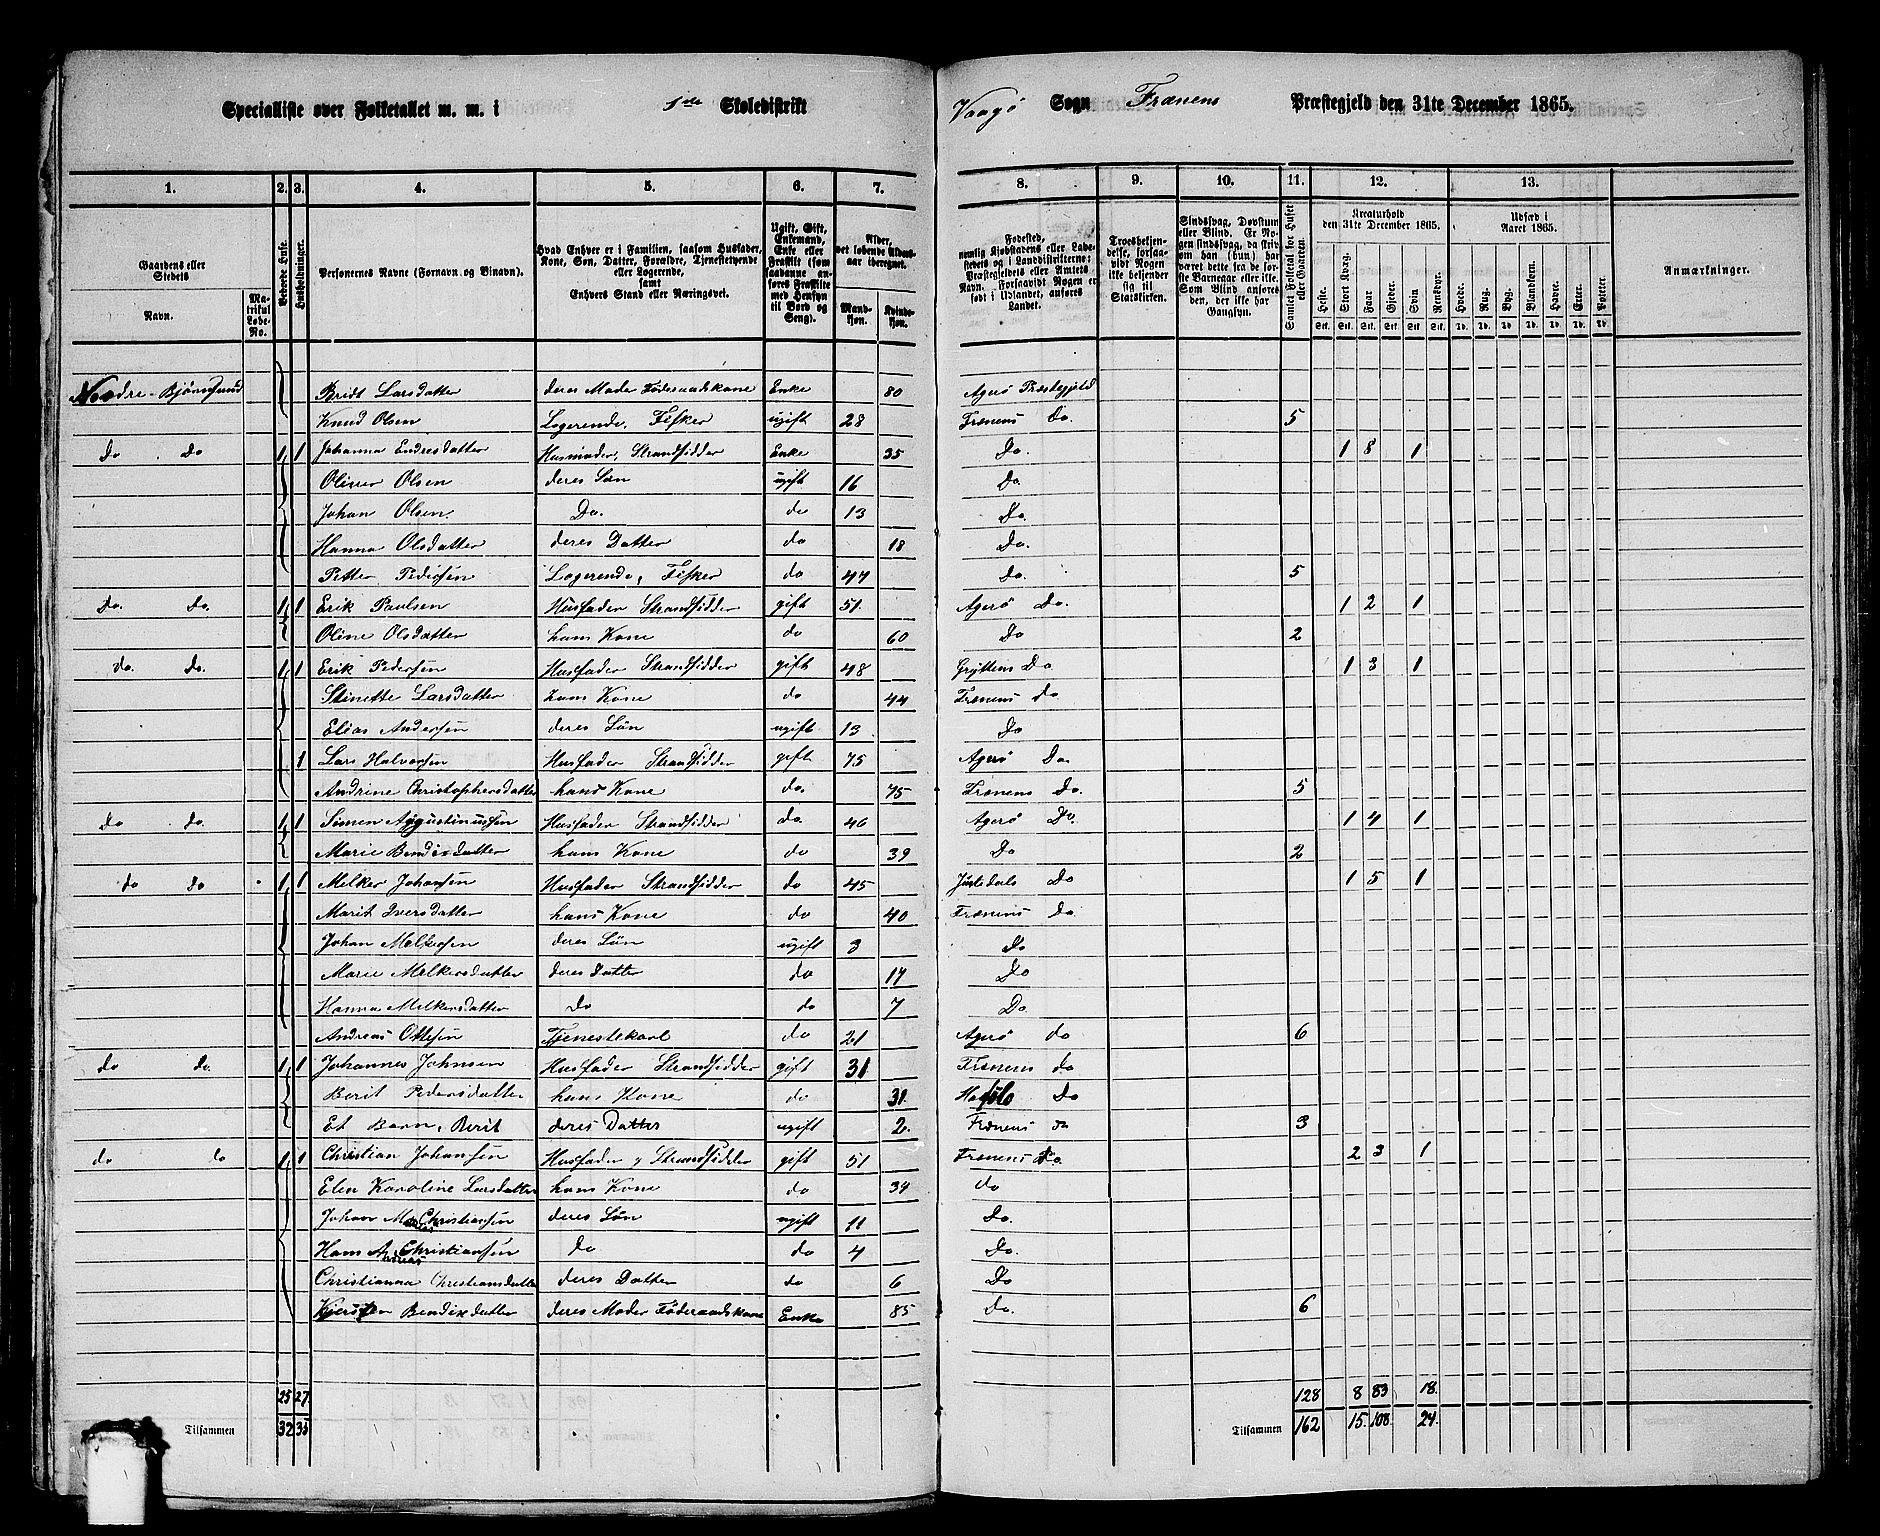 Specialliste over Folketallet m. m. i 1ste Skoledistrikt Vaagø Sogn Frænens Præstegjeld den 31te December 1865.
1. 2. 3. 4. 5. 6. 7. 8. 9. 10. 11. 12. 13.
Gaardens eller Stedets Navn. Matrikul Løbe-No. Beboede Huse. Husholdninger. Personernes Navne (Fornavn og Binavn). Hvad Enhver er i Familien, saasom Husfader, Kone, Søn, Datter, Forældre, Tjenestetyende eller Logerende, samt Enhvers Stand eller Næringsvei. Ugift, Gift, Enkemand, Enke eller Fraskilt (som saadanne anføres Fraskilte med Hensyn til Bord og Seng). Alder, det løbende Aldersaar iberegnet. Mandkjøn. Kvindekjøn. Fødested, nemlig Kjøbstadens eller Ladestedets og i Landdistrikterne: Præstegjeldets eller Amtets Navn. Forsaavidt Nogen er født i Udlandet, anføres Landet. Troesbekjendelse, forsaavidt Nogen ikke bekjender sig til Statskirken. Sindssvag, Døvstum eller Blind. Er Nogen sindssvag, da skrives om han (hun) har været dette fra de første Barneaar eller ikke. Som Blind anføres den, der ikke har Gangsyn. Samlet Folketal for Huset eller Gaarden. Kreaturhold den 31te December 1865. Heste. Stort Kvæg. Faar. Gjeder. Svin. Rensdyr. Udsæd i Aaret 1865. Hvede. Rug. Byg. Blandkorn. Havre. Erter. Poteter. Anmærkninger.
Nordre-Bjørnsund Bridt Larsdatter deres Moder Føderaadskone Enke 80 Agerø Præstegjeld
Knud Olsen Logerende, Fisker ugift 28 Frænens do. 5
Do Do 1 1 Johanna Endresdatter Husmoder, Strandsidder Enke 35 Do. 1 8 1
Oliver Olsen deres Søn ugift 16 Do
Johan Olsen. Do. do 13 Do.
Hanna Olsdatter deres Datter do 18 Do.
Petter Pedersen Logerende, Fisker do 44 Do. 5
Do. Do. 1 1 Erik Paulsen Husfader Strandsidder gift 51. Agerø Do. 1 2 1
Oline Olsdatter hans Kone do 60 Do 2
Do. do. 1 1 Erik Pedersen Husfader Strandsidder gift 48 Gryttens Do 1 3 1
Stinette Larsdatter hans Kone do 44 Frænens do
Elias Andersen deres Søn ugift 13 Do
1 Lars Halvorsen Husfader Strandsidder gift 75 Agerø Do.
Andrine Christophersdatter hans Kone do. 75 Frænens Do. 5
do do. 1 1 Simen Augustinussen Husfader Strandsidder do. 46 Agerø Do. 1 4 1
Marie Bendixdatter hans Kone do 39 Do 2
do do 1 1 Melker Johansen Husfader Strandsidder do 45 Justedals Do 1 5 1
Marit Iversdatter hans Kone do 40 Frænens Do.
Johan Melkersen deres Søn ugift 3 Do
Marie Melkersdatter deres Datter do 14 Do
Hanna Melkersdatter Do do 7 Do
Andreas Ottesen Tjenestekarl do 21 Agerø do 6
do do. 1 1 Johannes Johnsen Husfader Strandsidder gift 31 Frænens do
Berit Pedersdatter hans Kone do 31. Do
Et Barn, Berit deres Datter ugift 2. Frænens do 3
do do 1 1 Christian Johansen Husfader, Strandsidder gift 51 Frænens Do. 2 3 1
Elen Karoline Larsdatter hans Kone do 34 do
Johan Christiansen deres Søn ugift 11 Do.
Hans Andreas Christiansen Do do 4 Do.
Christianna Christiansdatter deres Datter do 6 Do
Kjersten Bendixdatter deres Moder Føderaadskone Enke 85 Do. 6
25 27. 128 8 83 18.
Tilsammen 32 35 Tilsammen 162 15. 108. 24.